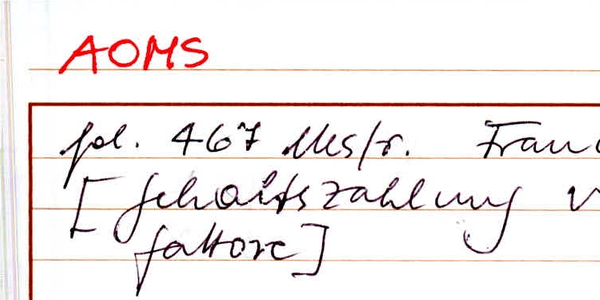 AOMS
fol. 467 Mesfr. Franc
[Gehaltszahlung v
fattore]